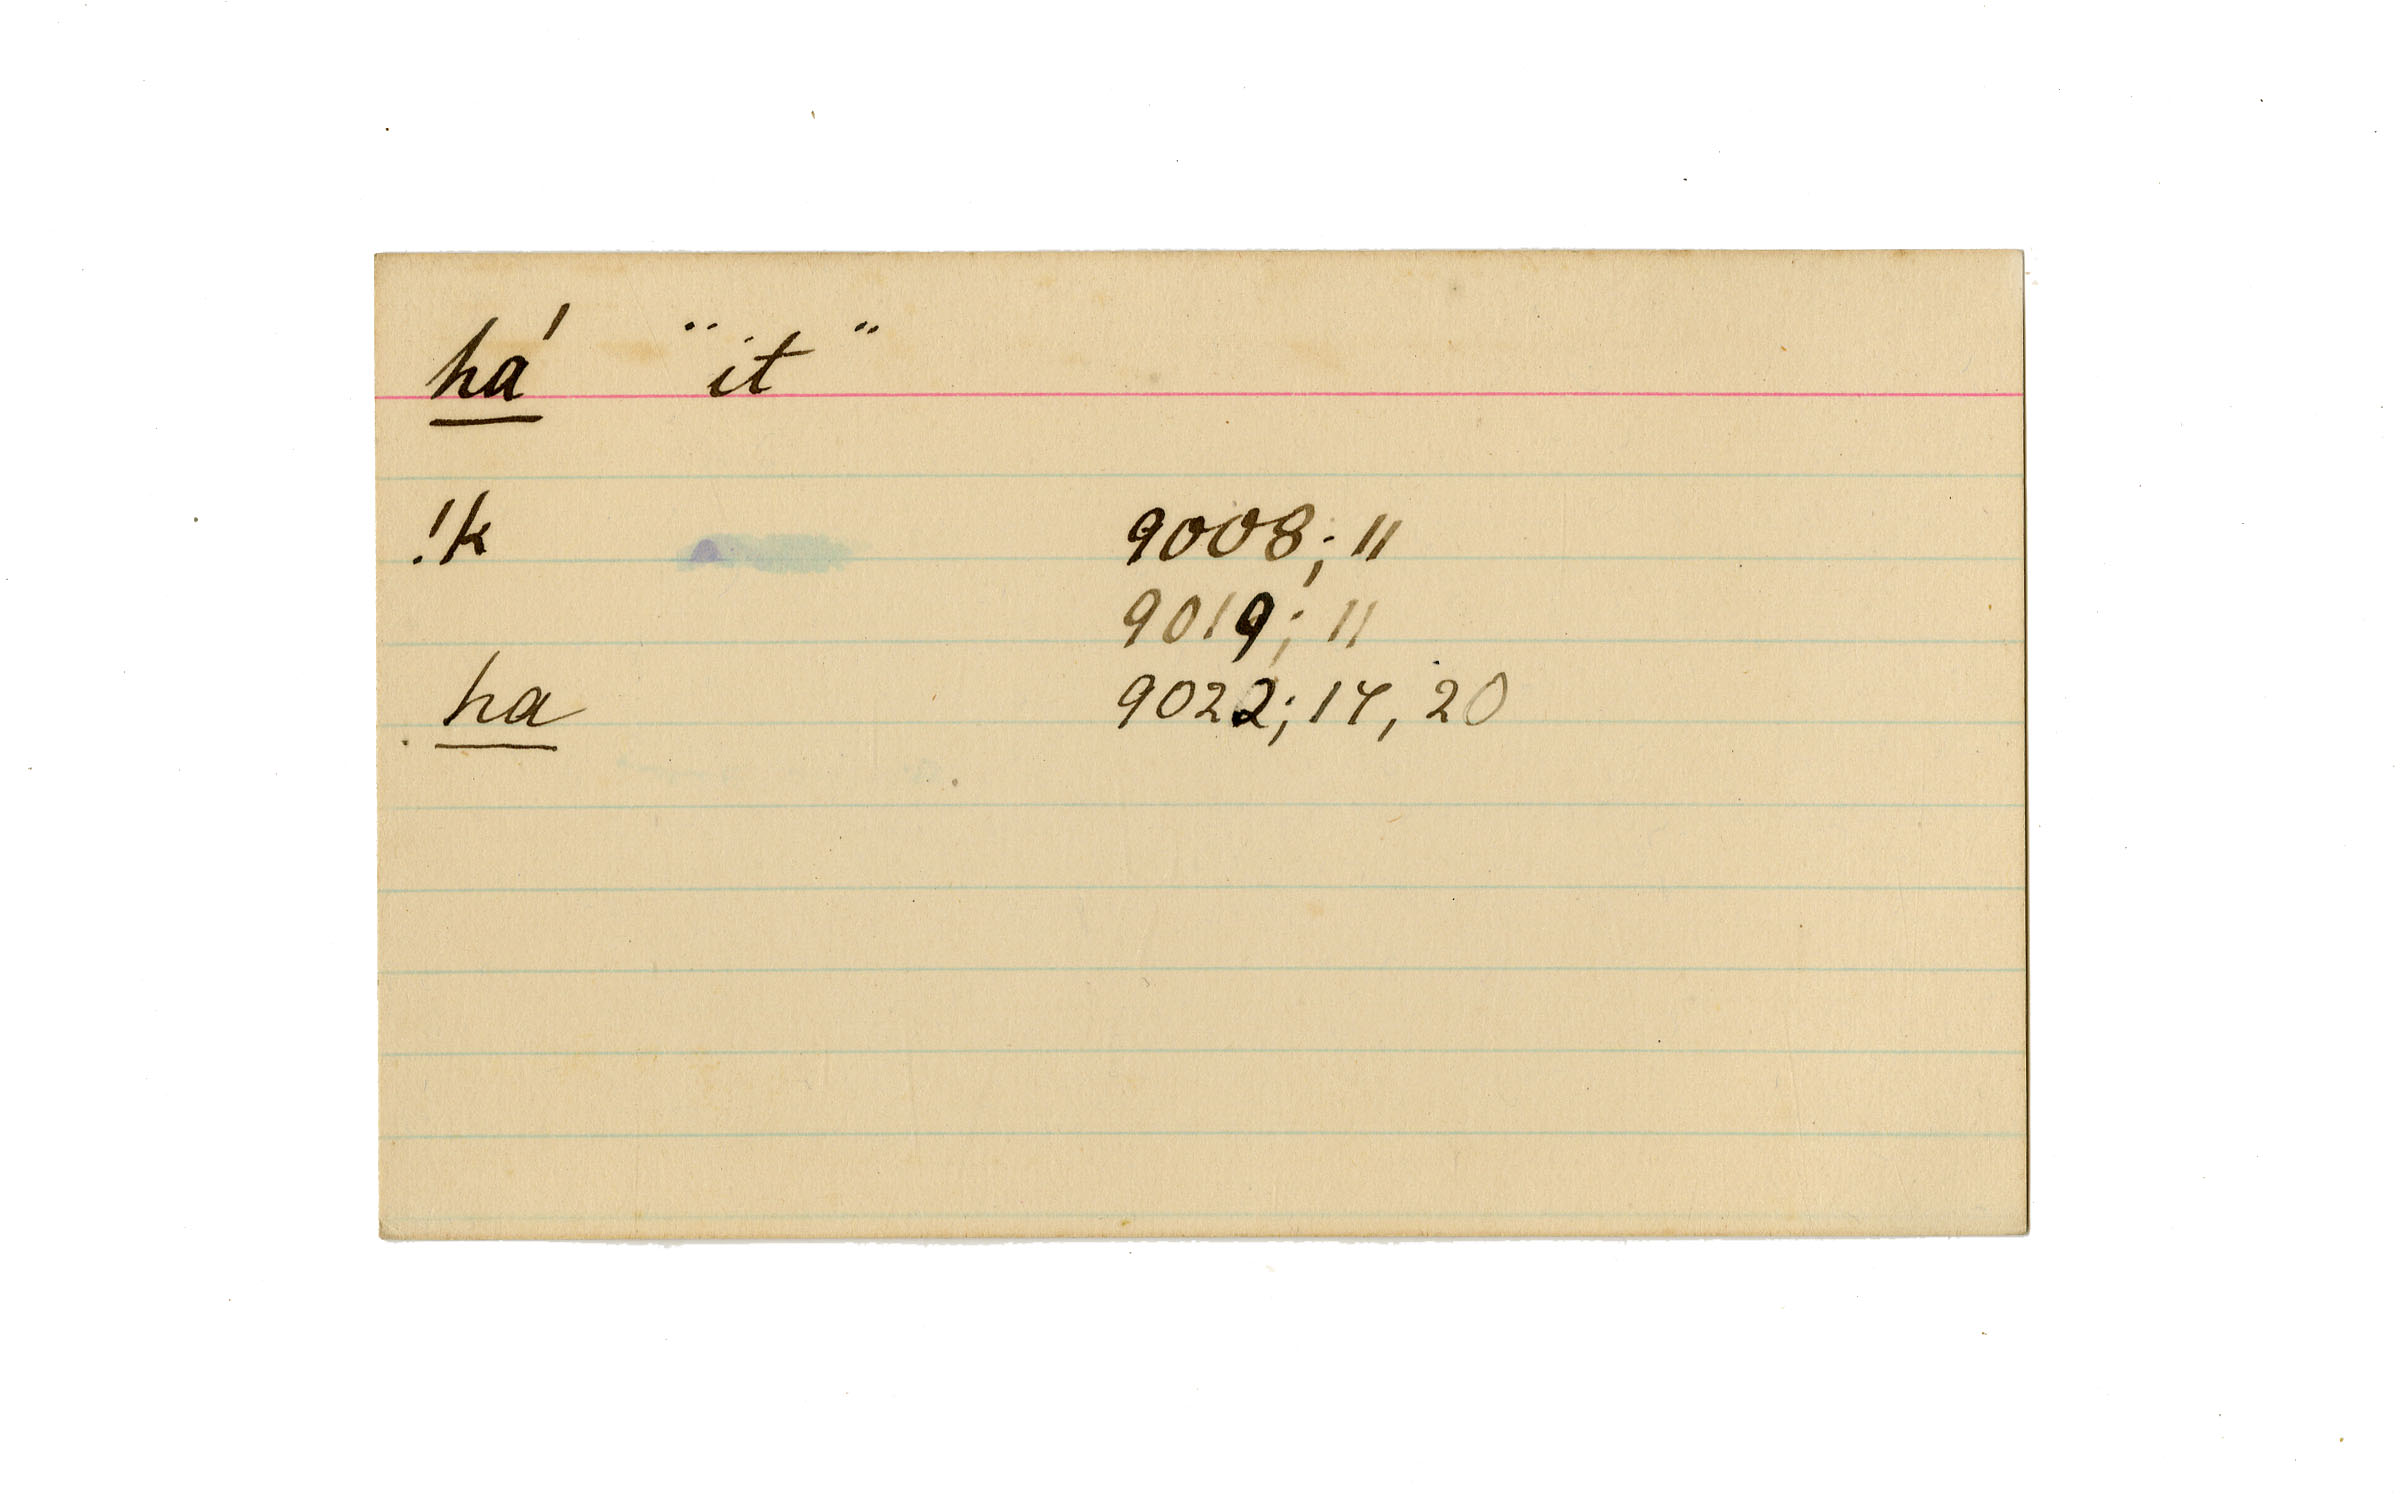 há "it"
!k 9008; 11
9019; 11
ha 9022; 14, 20